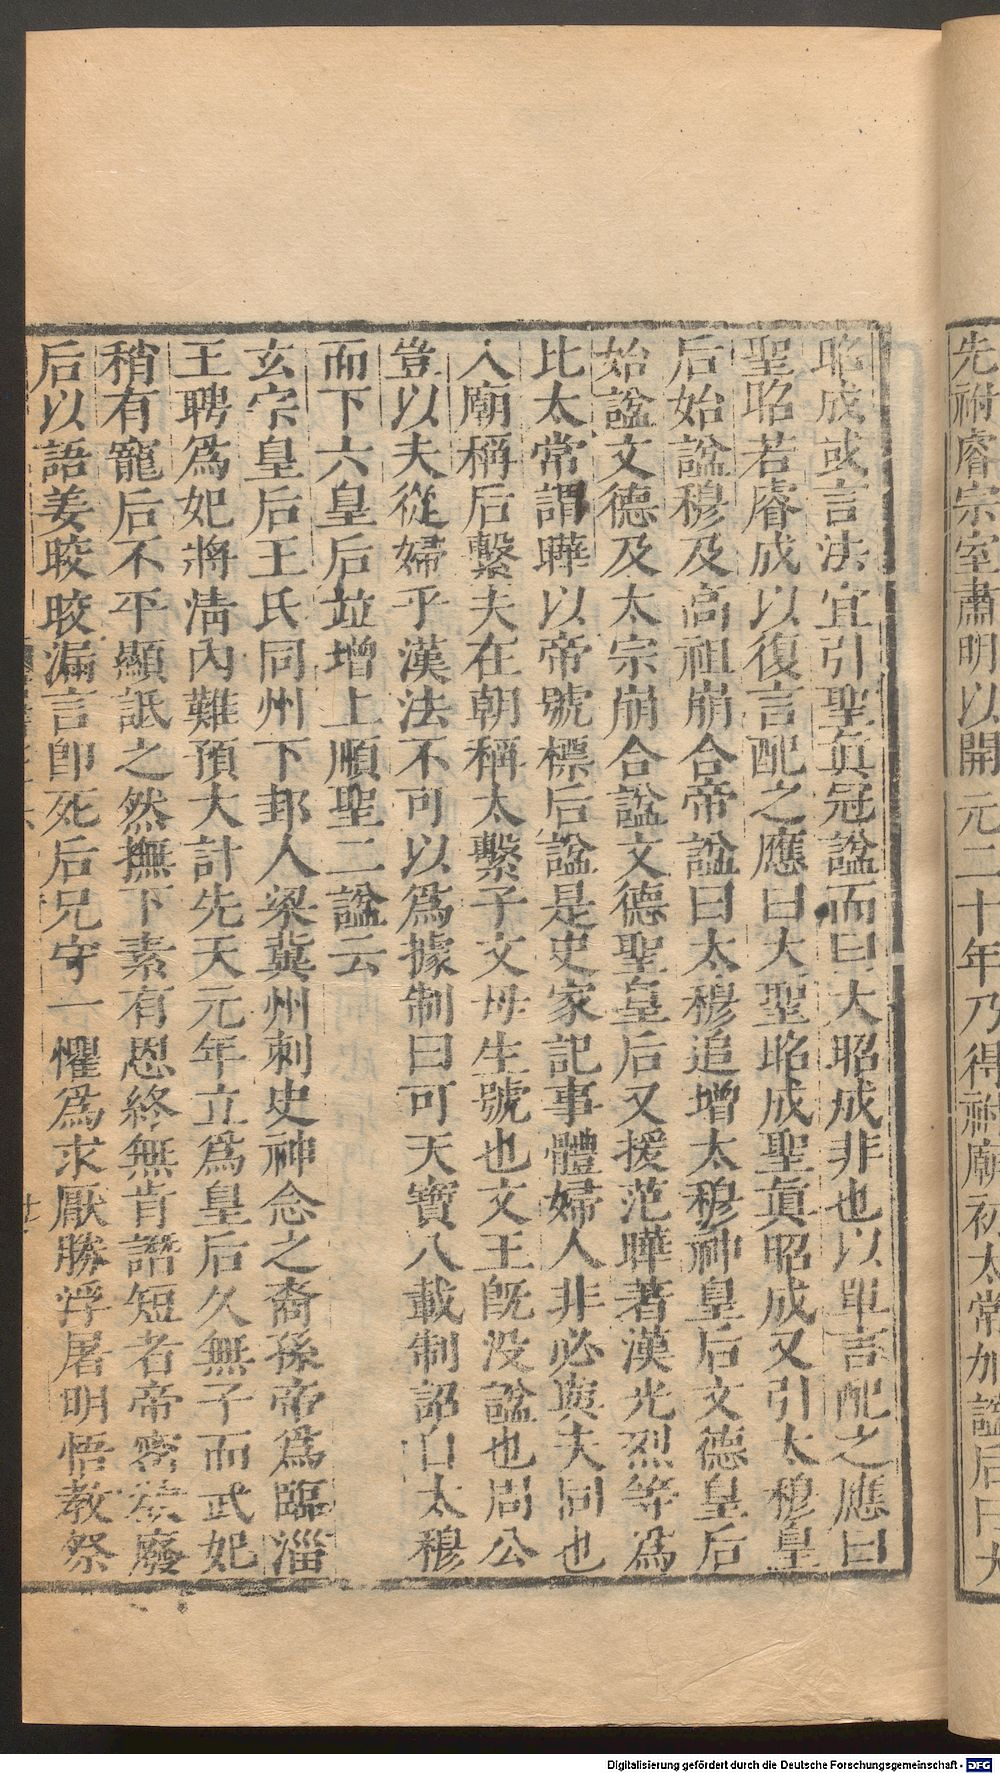 先祔睿宗室肅明以開元二十年乃得祔廟初太常加諡后曰大
昭成或言法宜引聖眞冠諡而曰大昭成非也以單言配之應曰
聖昭若睿成以復言配之應曰大聖昭成聖眞昭成又引太穆皇
后始諡穆及高祖崩合帝諡曰太穆追增太穆神皇后文德皇后
始諡文德及太宗崩合諡文德聖皇后又援范曄著漢光烈等爲
比太常謂曄以帝號標后諡是史家記事體婦人非必與夫同也
入廟稱后繫夫在朝稱太繫子文母生號也文王旣没諡也周公
豈以夫從婦乎漢法不可以爲據制曰可天寶八載制詔自太穆
而下六皇后竝增上順聖二諡云
玄宗皇后王氏同州下邽人梁冀州刺史神念之裔孫帝爲臨淄
王聘爲妃將淸內難預大計先天元年立爲皇后久無子而武妃
稍有寵后不平顯詆之然撫下素有恩終無肯譖短者帝密欲廢
后以語姜晈晈漏言卽死后兄守一懼爲求厭勝浮屠明悟教祭
Digitalisierung gefördert durch die Deutsche Forschungsgemeinschaft - DFG